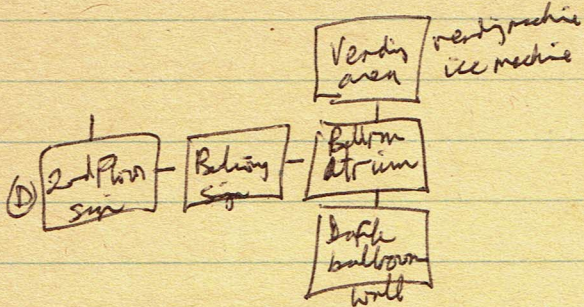 Vending
area
vending machine
ice machine
D
2nd Floor
sign
Balcony
sign
Ballroom
atrium
ballroom
wall